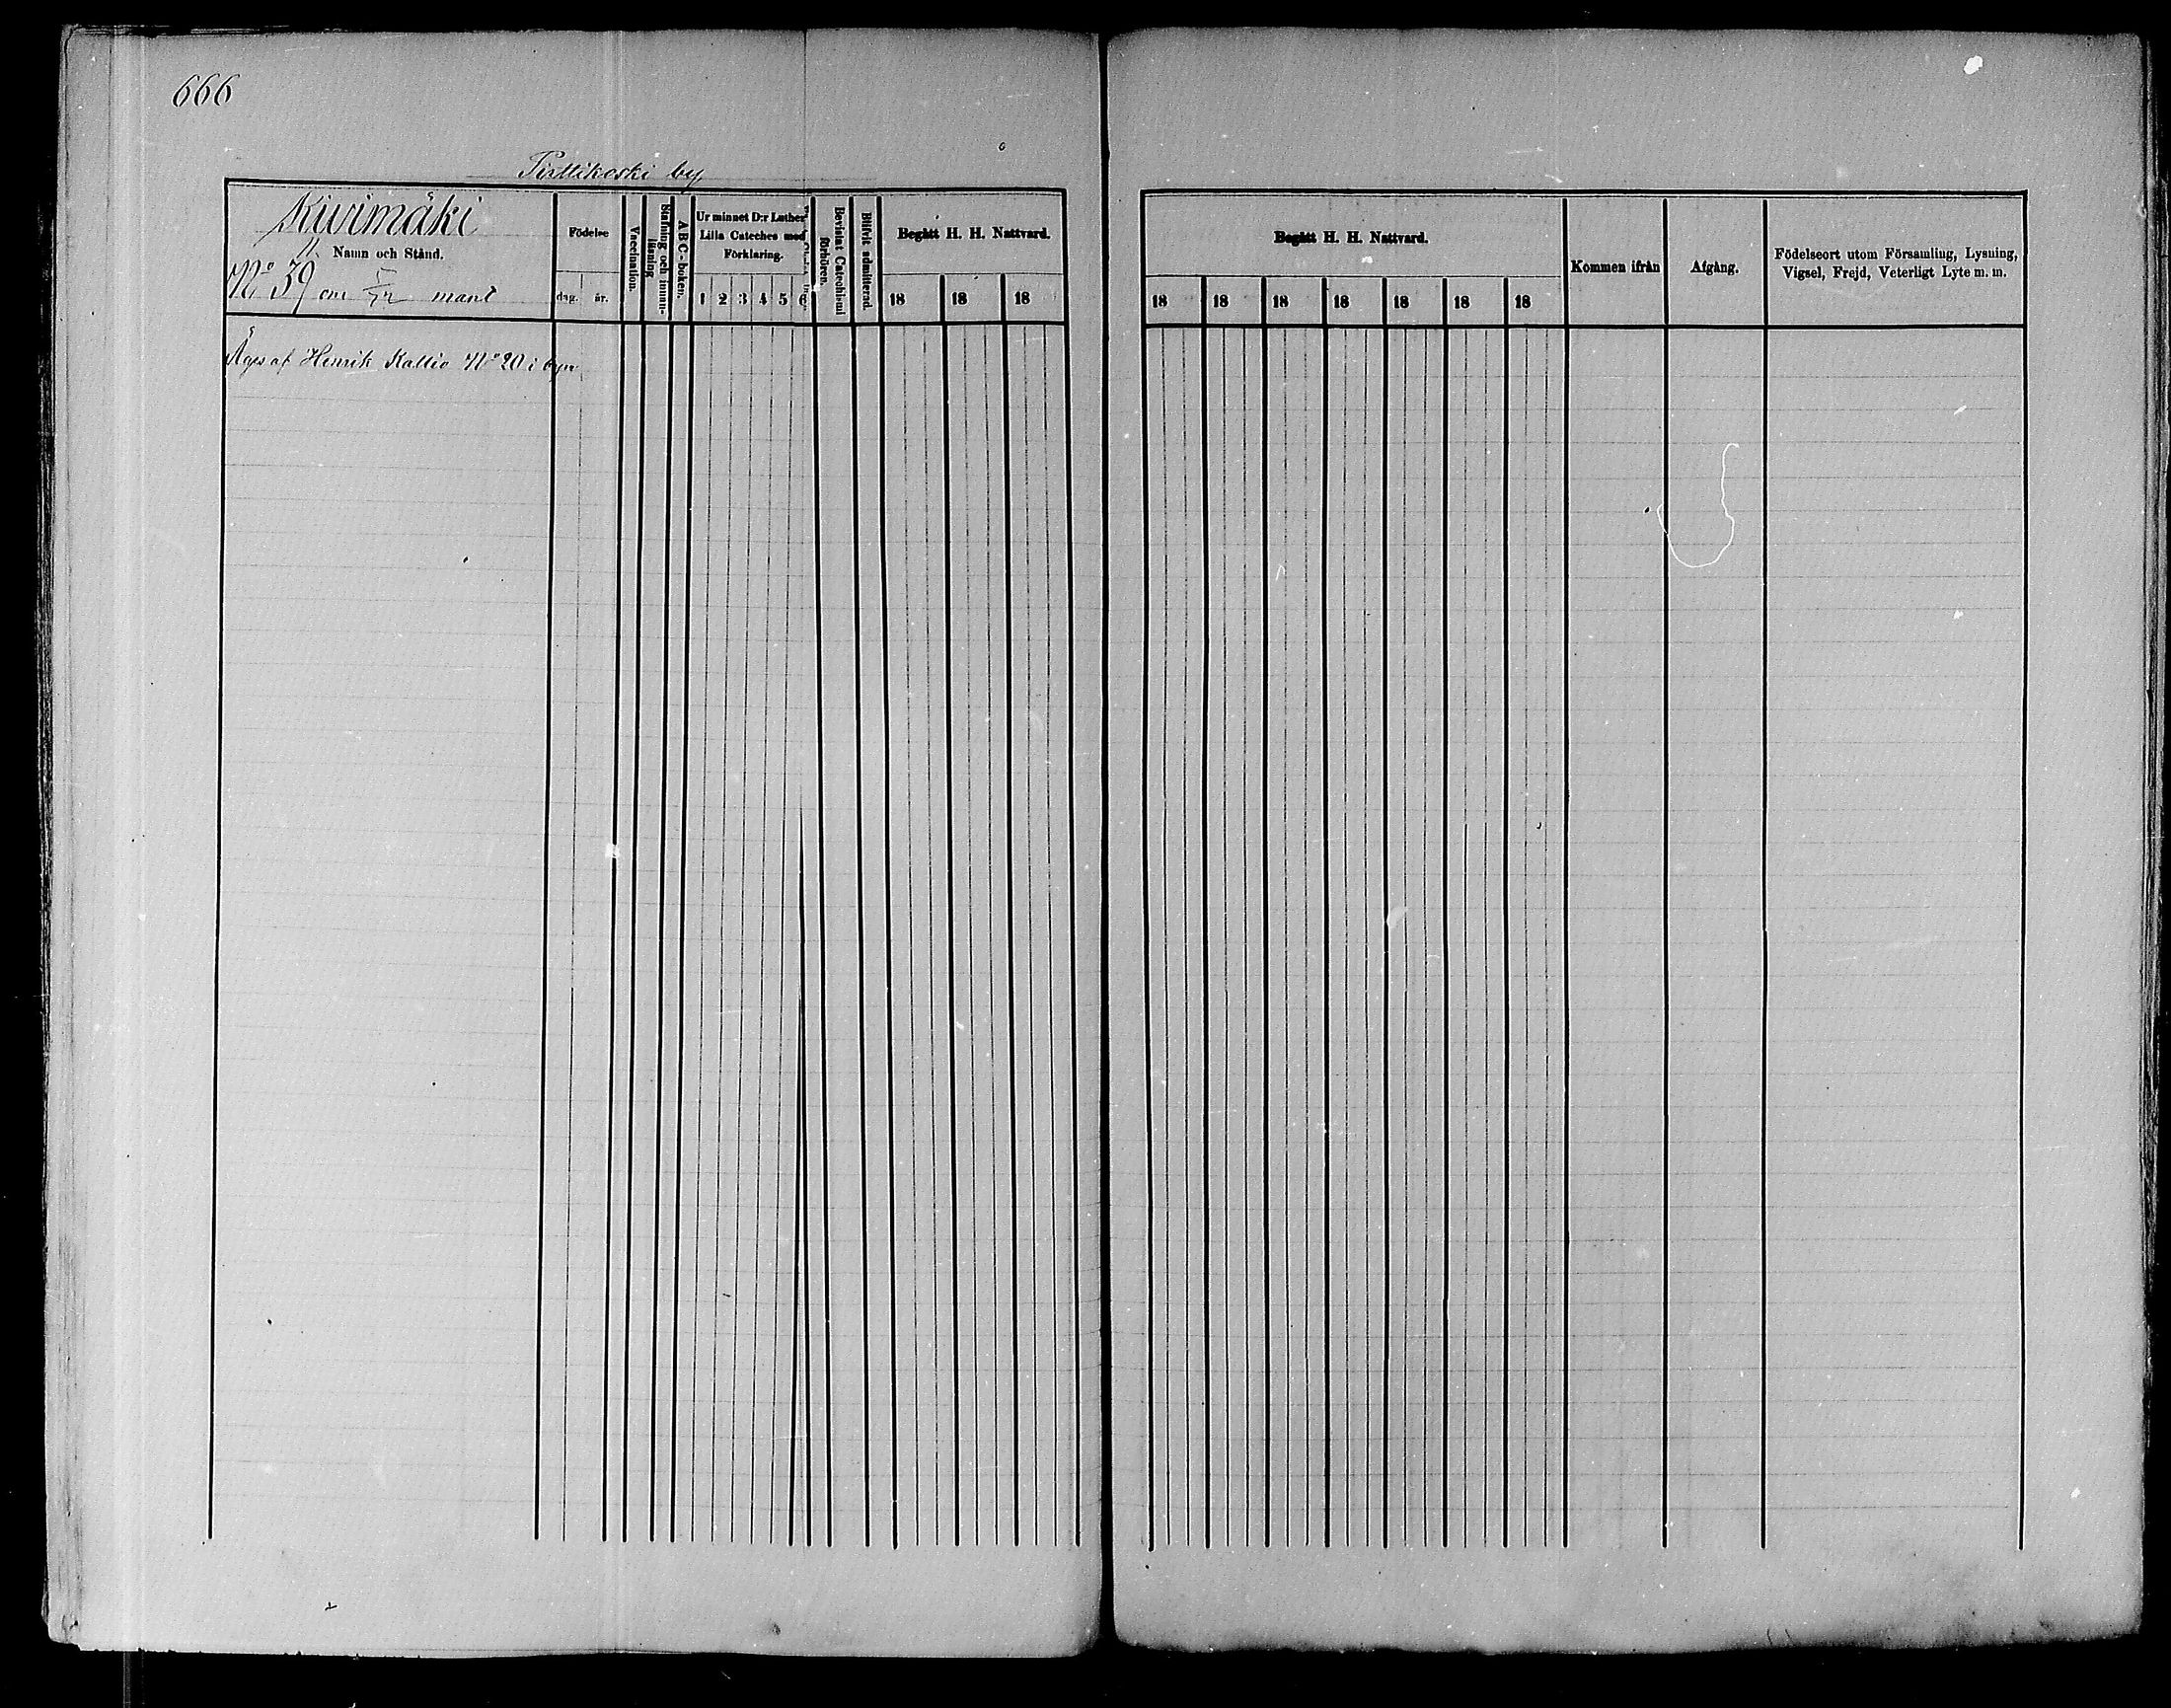 666
Pirttikoski by
Kivimäki
Namn och Stånd.
No 39 om mant
Födelse
dag. år.
Vaccination.
Stafning och innan-
läsning
A B C - boken.
Ur minnet D:r Luther
Lilla Cateches med
Förklaring.
1 2 3 4 5 6
Bevistat Catechismi
förhören.
Blifvit admitterad.
Begått H. H. Nattvard.
18 18 18
Äges af Henrik Kallio No 20 i byn
Begått H. H. Nattvard.
18 18 18 18 18 18 18
Kommen ifrån
Afgång.
Födelseort utom Församling, Lysning,
Vigsel, Frejd, Veterligt Lyte m. m.